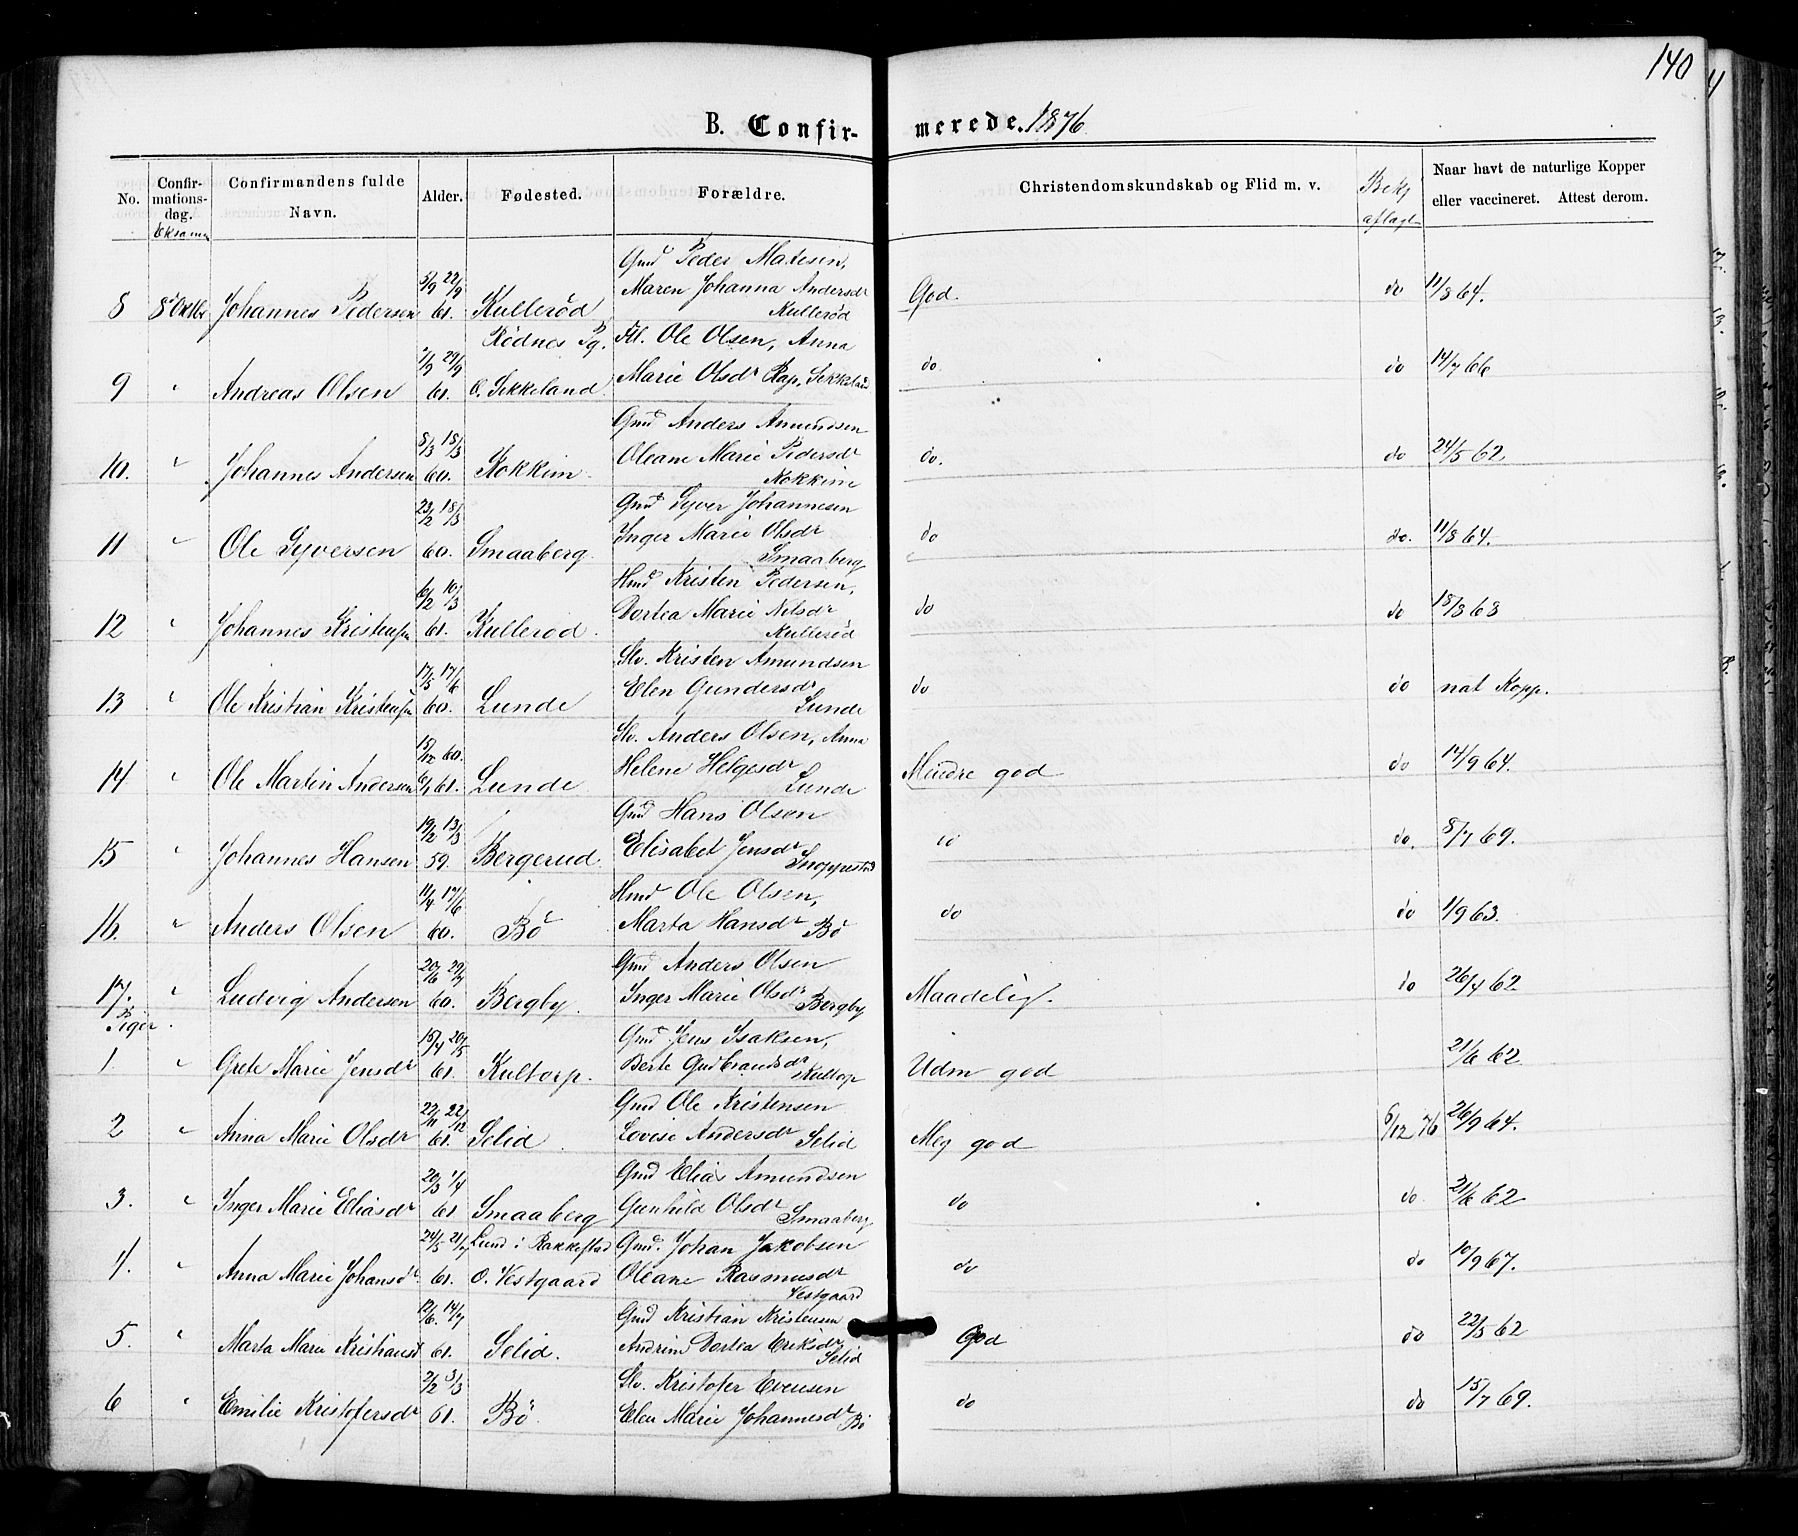 140
B. Confirmerede. 1876
No.
Confirmationsdag. Eksamen
Confirmandens fulde Navn.
Alder.
Fødested.
Forældre.
Christendomskundskab og Flid m. v.
aflagt
Naar havt de naturlige Kopper eller vaccineret. Attest derom.
8 8 Oktbr Johannes Pedersen 5/9 22/9 61. Kullerød Gmd Peder Matesen, Maren Johanna Andersdr Kullerød God. do 11/8 64.
9 " Andreas Olsen 1/9 29/9 61. Rødnes Pg. O. Sekkeland Fl. Ole Olsen, Anna Marie Olsdr Rap. Sekkeland do. do 14/7 66
10. " Johannes Andersen 8/3 18/3 60. Kokkim Gmd Anders Amundsen Oleane Marie Pedersdr Kokkim do. do 24/5 62.
11 " Ole Syversen 23/2 18/3 60. Smaaberg. Gmd Syver Johannesen Inger Marie Olsdr Smaaberg do do. 11/8 64.
12 " Johannes Kristensen 6/2 10/3 61. Kullerød. Hmd Kristen Pedersen, Dortea Marie Nelsdr Kullerød do do 18/8 63
13 " Ole Kristian Kristensen 17/5 17/6 60. Lunde Slv. Kristen Amundsen Elen Gundersdr Lunde do do nat Kopp.
14 " Ole Martin Andersen 15/12 60. 6/1 61. Lunde Slv. Anders Olsen, Anna Helene Helgesdr Lunde Mindre god do 14/9 64.
15 " Johannes Hansen 19/2 13/3 59. Bergerud Gmd Hans Olsen Elisabet Jensdr Snoppestad do do. 8/7 69.
16. " Anders Olsen 14/4 17/6 60. Bö Hmd Ole Olsen, Marta Hansdr Bö do do 1/9 63.
17. " Ludvig Andersen 20/6 29/7 60. Bergby. Gmd Anders Olsen Inger Marie Olsdr Bergby Maadelig. do 26/4 62
Piger.
1. " Grete Marie Jensdr 15/4 20/5 61. Kultorp. Gmd Jens Isaksen, Berte Gudbrandsdr Kultorp Udm god 21/6 62.
2 " Anna Marie Olsdr 22/11 22/12 61. Selid. Gmd Ole Kristensen Lovise Andersdr Selid Meg god 6/12 76 26/9 64.
3. " Inger Marie Eliasdr 20/3 1/4 61 Smaaberg Gmd Elias Amundsen Gunhild Olsdr Smaaberg do do. 21/6 62
4. " Anna Marie Johansdr 24/5 21/7 61. Lund i Rakkestad O. Vestgaard Gmd. Johan Jakobsen Oleane Rasmusdr Vestgaard do do 10/9 67.
5. " Marta Marie Kristiansd 12/6. 14/7 61. Selid. Gmd Kristian Kristensen Andrine Dortea Eriksdr Selid God do 22/5 62
6 " Emilie Kristofersdr 2/2 3/3 61. Bö. Slv. Kristofer Evensen Elen Marie Johannesdr Bö do do 15/7 69.